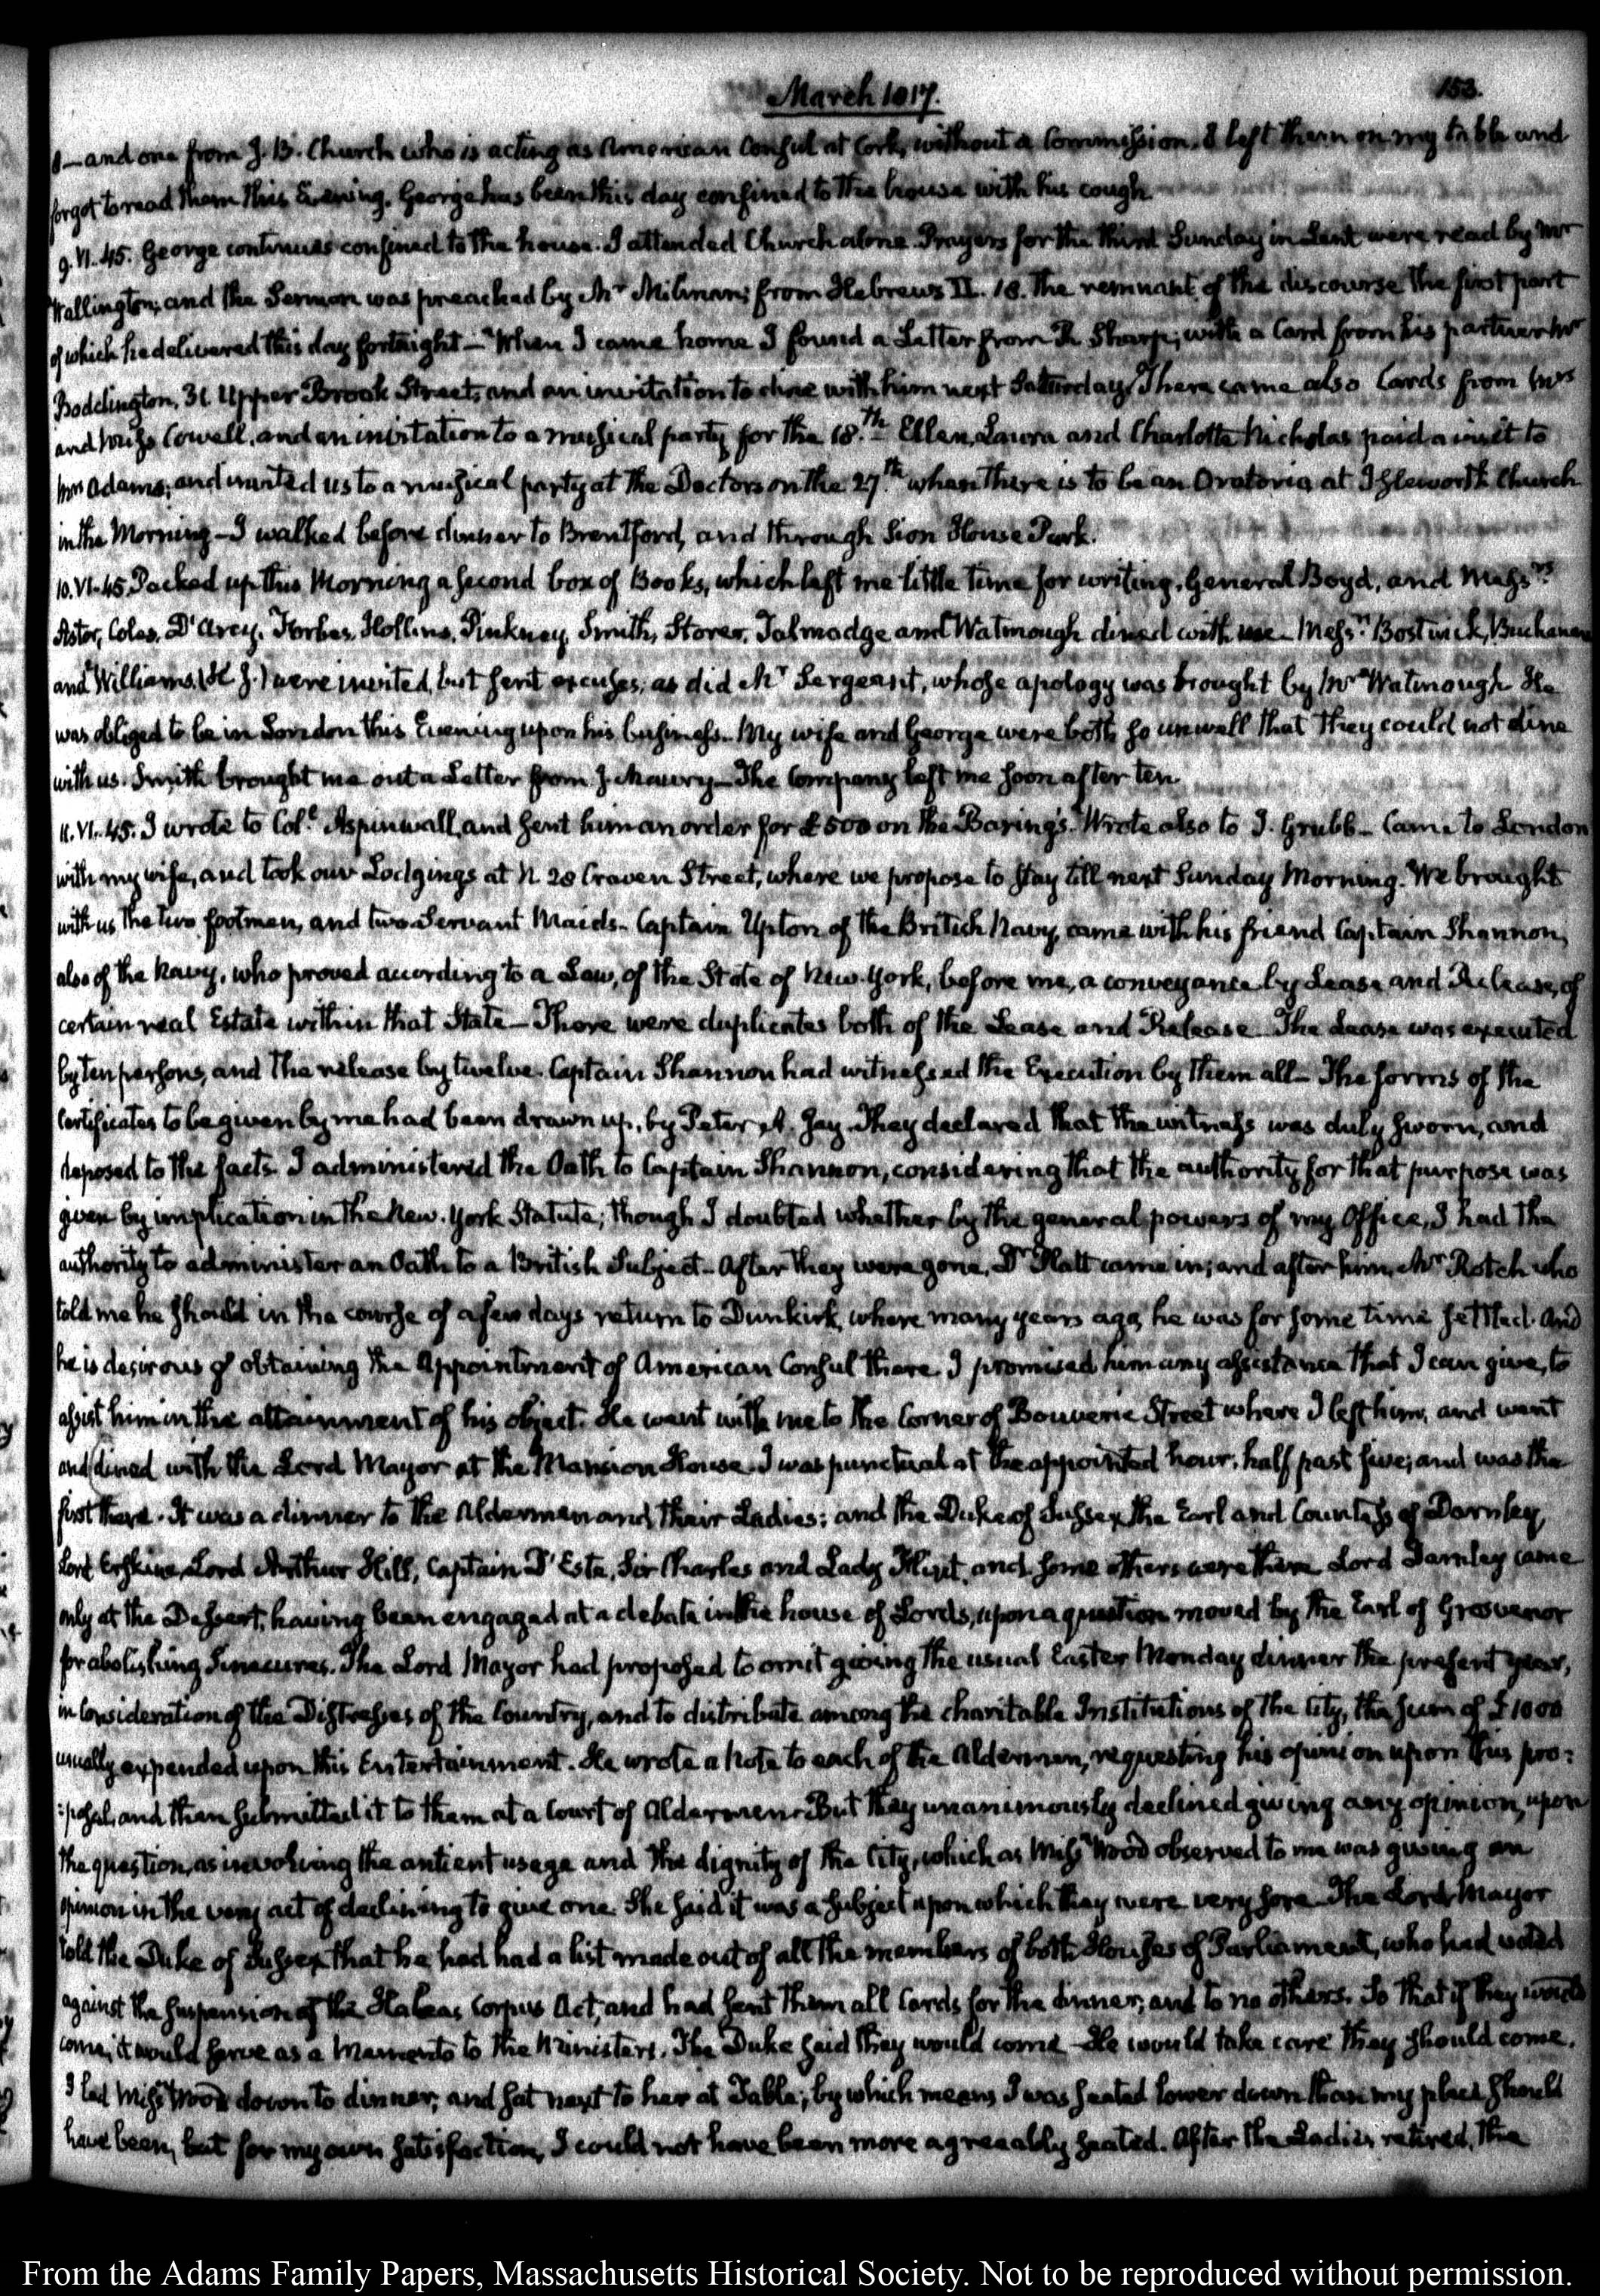 March 1817.
153.
8— and one from J. B. Church who is acting as American Consul at Cork, without a Commission. I left them on my table and
forgot to read them this Evening. George has been this day confined to the house with his cough
9. VI. 45. George continues confined to the house. I attended Church alone. Prayers for the third Sunday in Lent were read by Mr
Wallington; and the Sermon was preached by Mr Milman; from Hebrews II. 18. The remnant of the discourse the first part
of which he delivered this day fortnight— When I came home I found a Letter from R Sharp; with a Card from his partner Mr
Boddington, 31 Upper Brook Street, and an invitation to dine with him next Saturday. There came also Cards from Mrs
and Miss Cowell, and an invitation to a musical party for the 18.th Ellen, Laura and Charlotte Nicholas paid a visit to
Mrs Adams; and invited us to a musical party at the Doctors on the 27.th when there is to be an Oratorio, at Isleworth Church
in the Morning— I walked before dinner to Brentford, and through Sion House Park.
10. VI. 45. Packed up this Morning a second box of Books, which left me little time for writing. General Boyd, and Messrs
Astor, Coles, D'Arcy, Forbes, Hollins, Pinkney, Smith, Storer, Talmadge and Watmough dined with me— Messrs Bostwick, Buchanan
and Williams. (H J.) were invited, but sent excuses; as did Mr Sergeant, whose apology was brought by Mr Watmough He
was obliged to be in London this Evening upon his business. My wife and George were both so unwell that they could not dine
with us. Smith brought me out a Letter from J. Maury— The Company left me soon after ten.
11. VI. 45. I wrote to Coll. Aspinwall, and sent him an order for £500 on the Barings. Wrote also to J. Grubb— Came to London
with my wife, and took our Lodgings at N. 28 Craven Street, where we propose to stay till next Sunday Morning. We brought
with us the two footmen, and two Servant Maids— Captain Upton of the British Navy, came with his friend Captain Shannon,
also of the Navy, who proved according to a Law, of the State of New-York, before me, a conveyance by Lease and Release, of
certain real Estate within that State— There were duplicates both of the Lease and Release The Lease was executed
by ten persons, and the release by twelve. Captain Shannon had witnessed the Execution by them all— The forms of the
Certificates to be given by me had been drawn up, by Peter A. Jay. They declared that the witness was duly sworn, and
deposed to the facts. I administered the Oath to Captain Shannon, considering that the authority for that purpose was
given by implication in the New-York Statute; though I doubted whether by the general powers of my Office, I had the
authority to administer an Oath to a British Subject— After they were gone, Dr Hall came in; and after him, Mr Rotch who
told me he should in the course of a few days return to Dunkirk, where many years ago, he was for some time settled. And
he is desirous of obtaining the Appointment of American Consul there. I promised him any assistance that I can give, to
assist him in the attainment of his object. He went with me to the Corner of Bouverie Street where I left him, and went
and dined with the Lord Mayor at the Mansion House. I was punctual at the appointed hour; half past five; and was the
first there. It was a dinner to the Aldermen and their Ladies; and the Duke of Sussex, the Earl and Countess of Darnley,
Lord Erskine, Lord Arthur Hill, Captain D'Este, Sir Charles and Lady Flint, and some others were there Lord Darnley came
only at the Dessert, having been engaged at a debate in the house of Lords, upon a question moved by the Earl of Grosvenor
for abolishing Sinecures. The Lord Mayor had proposed to omit giving the usual Easter Monday dinner the present year,
in Consideration of the Distresses of the Country, and to distribute among the charitable Institutions of the City, the sum of £1000
usually expended upon this Entertainment. He wrote a Note to each of the Aldermen, requesting his opinion upon this pro:
:posal, and then submitted it to them at a Court of Aldermen. But they unanimously declined giving any opinion, upon
the question, as involving the antient usage and the dignity of the City, which as Miss Wood observed to me was giving an
opinion in the very act of declining to give one. She said it was a subject upon which they were very sore. The Lord Mayor
told the Duke of Sussex that he had had a list made out of all the members of both Houses of Parliament, who had voted
against the suspension of the Habeas Corpus Act, and had sent them all Cards for the dinner; and to no others. So that if they would
come, it would serve as a Memento to the Ministers. The Duke said they would come— He would take care they should come.
I led Miss Wood down to dinner, and sat next to her at Table; by which means I was seated lower down than my place should
have been, but for my own satisfaction, I could not have been more agreeably seated. After the Ladies retired, the
From the Adams Family Papers, Massachusetts Historical Society. Not to be reproduced without permission.